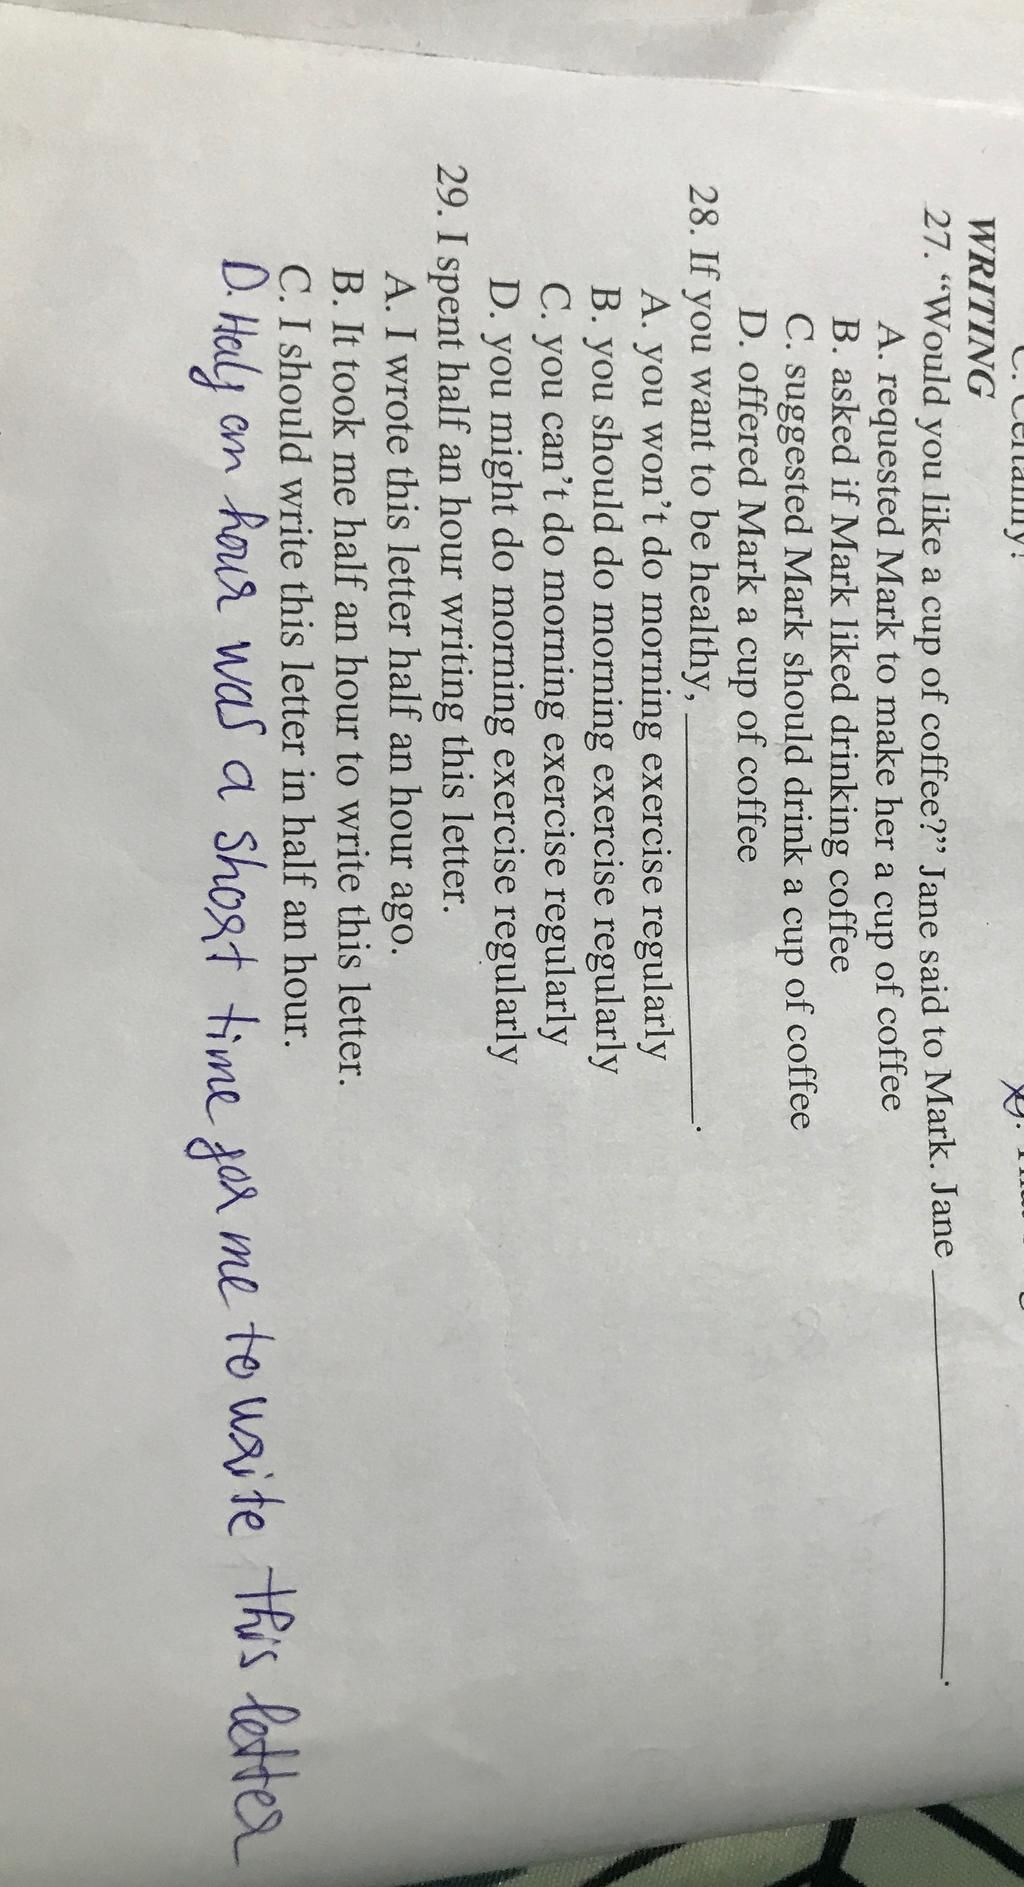 WRITING
27. “Would you like a cup of coffee?” Jane said to Mark. Jane ____________.
A. requested Mark to make her a cup of coffee
B. asked if Mark liked drinking coffee
C. suggested Mark should drink a cup of coffee
D. offered Mark a cup of coffee
28. If you want to be healthy, ____________.
A. you won’t do morning exercise regularly
B. you should do morning exercise regularly
C. you can’t do morning exercise regularly
D. you might do morning exercise regularly
29. I spent half an hour writing this letter.
A. I wrote this letter half an hour ago.
B. It took me half an hour to write this letter.
C. I should write this letter in half an hour.
D. Half an hour was a short time for me to write this letter